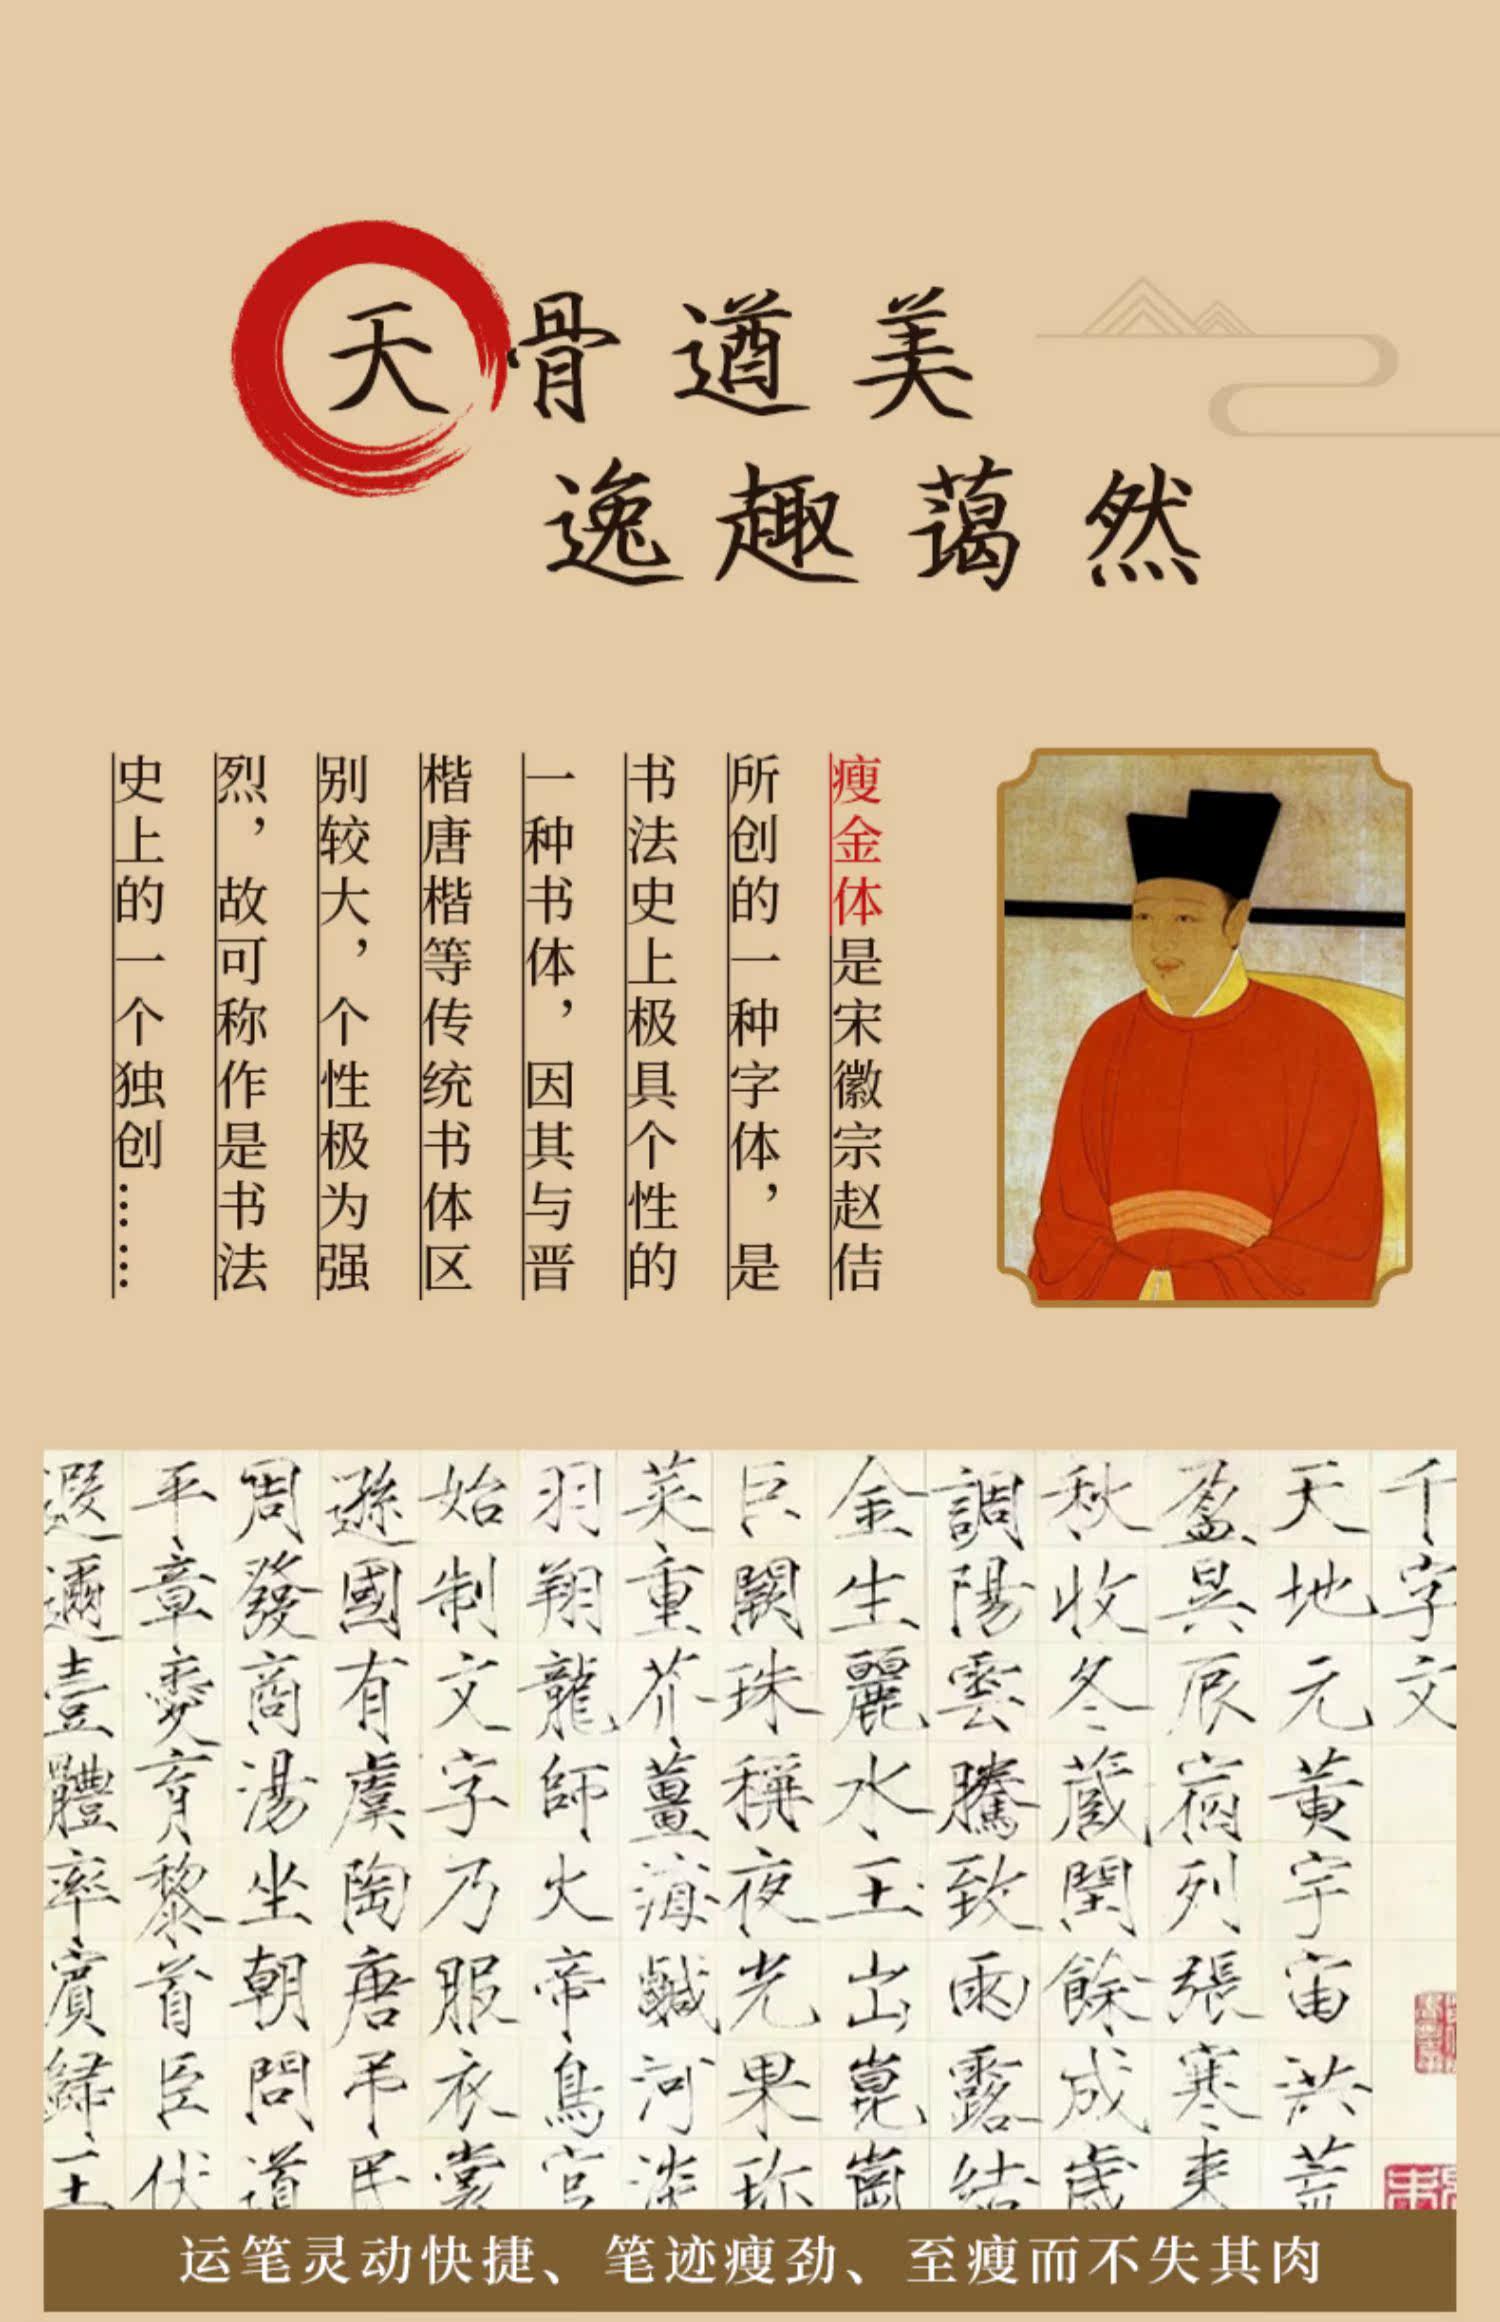 天骨遒美
逸趣蔼然
瘦金体是宋徽宗赵佶
所创的一种字体，是
书法史上极具个性的
一种书体，因其与晋
楷唐楷等传统书体区
别较大，个性极为强
烈，故可称作是书法
史上的一个独创……
千字文
天地元黄宇宙洪荒
盈昃辰宿列张寒来
秋收冬蔵閏餘成歳
調陽雲騰致雨露結
金生麗水玉出崑崗
巨闕珠稱夜光果珎
菜重芥薑海鹹河淡
羽翔龍師火帝鳥官
始制文字乃服衣裳
遜國有虞陶唐弔民
周發商湯坐朝問道
平章愛育黎首臣伏
遐邇壹體率賓歸王
运笔灵动快捷、笔迹瘦劲、至瘦而不失其肉